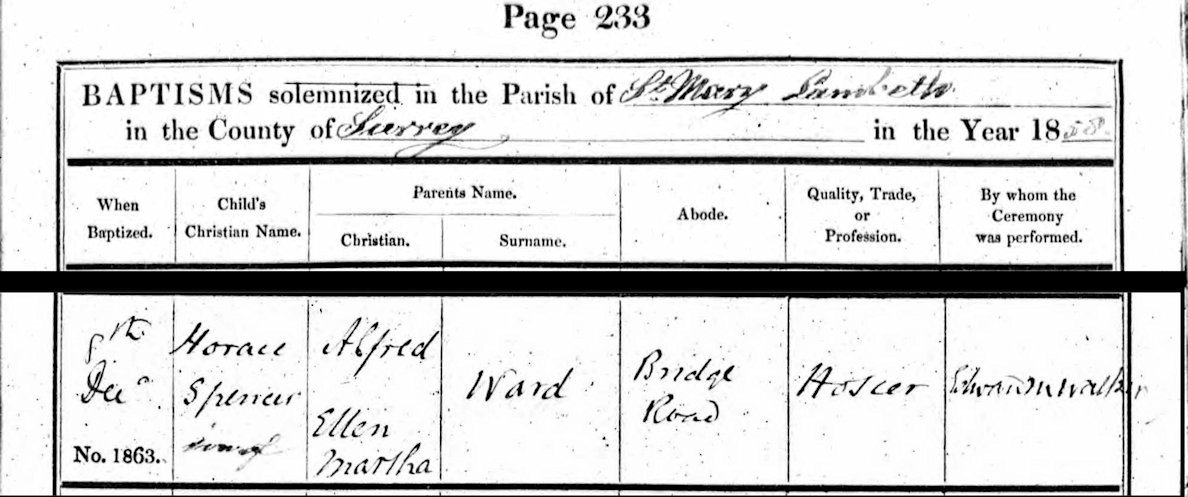 Page 233
BAPTISMS solemnized in the Parish of St. Mary Lambeth
in the County of Surrey in the Year 1858.
When
Baptized.
Child's
Christian Name.
Parents Name.
Christian.
Surname.
Abode.
Quality, Trade,
or
Profession.
By whom the
Ceremony
was performed.
8th
Decr
No. 1863.
Horace
Spencer
son of
Alfred
Ellen
Martha
Ward
Bridge
Road
Hosier
Edward Walker